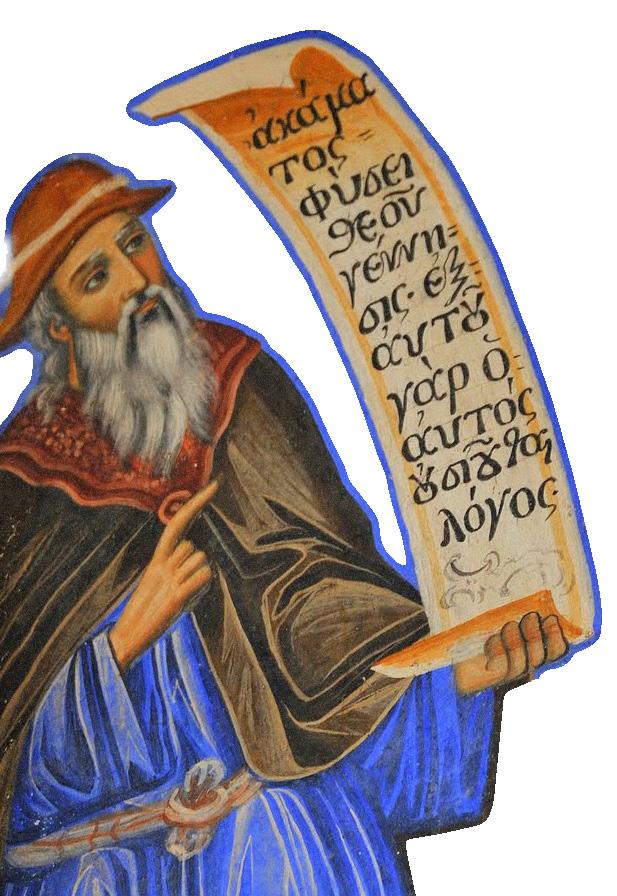 ἀκάμα
τος=
φύσει
θεοῦ
γέννη=
σις· ἐξ=
ἀυτȣ͂
γὰρ ὁ=
ἀυτὸς
ȣ̓σιȣ͂ται
λόγος·